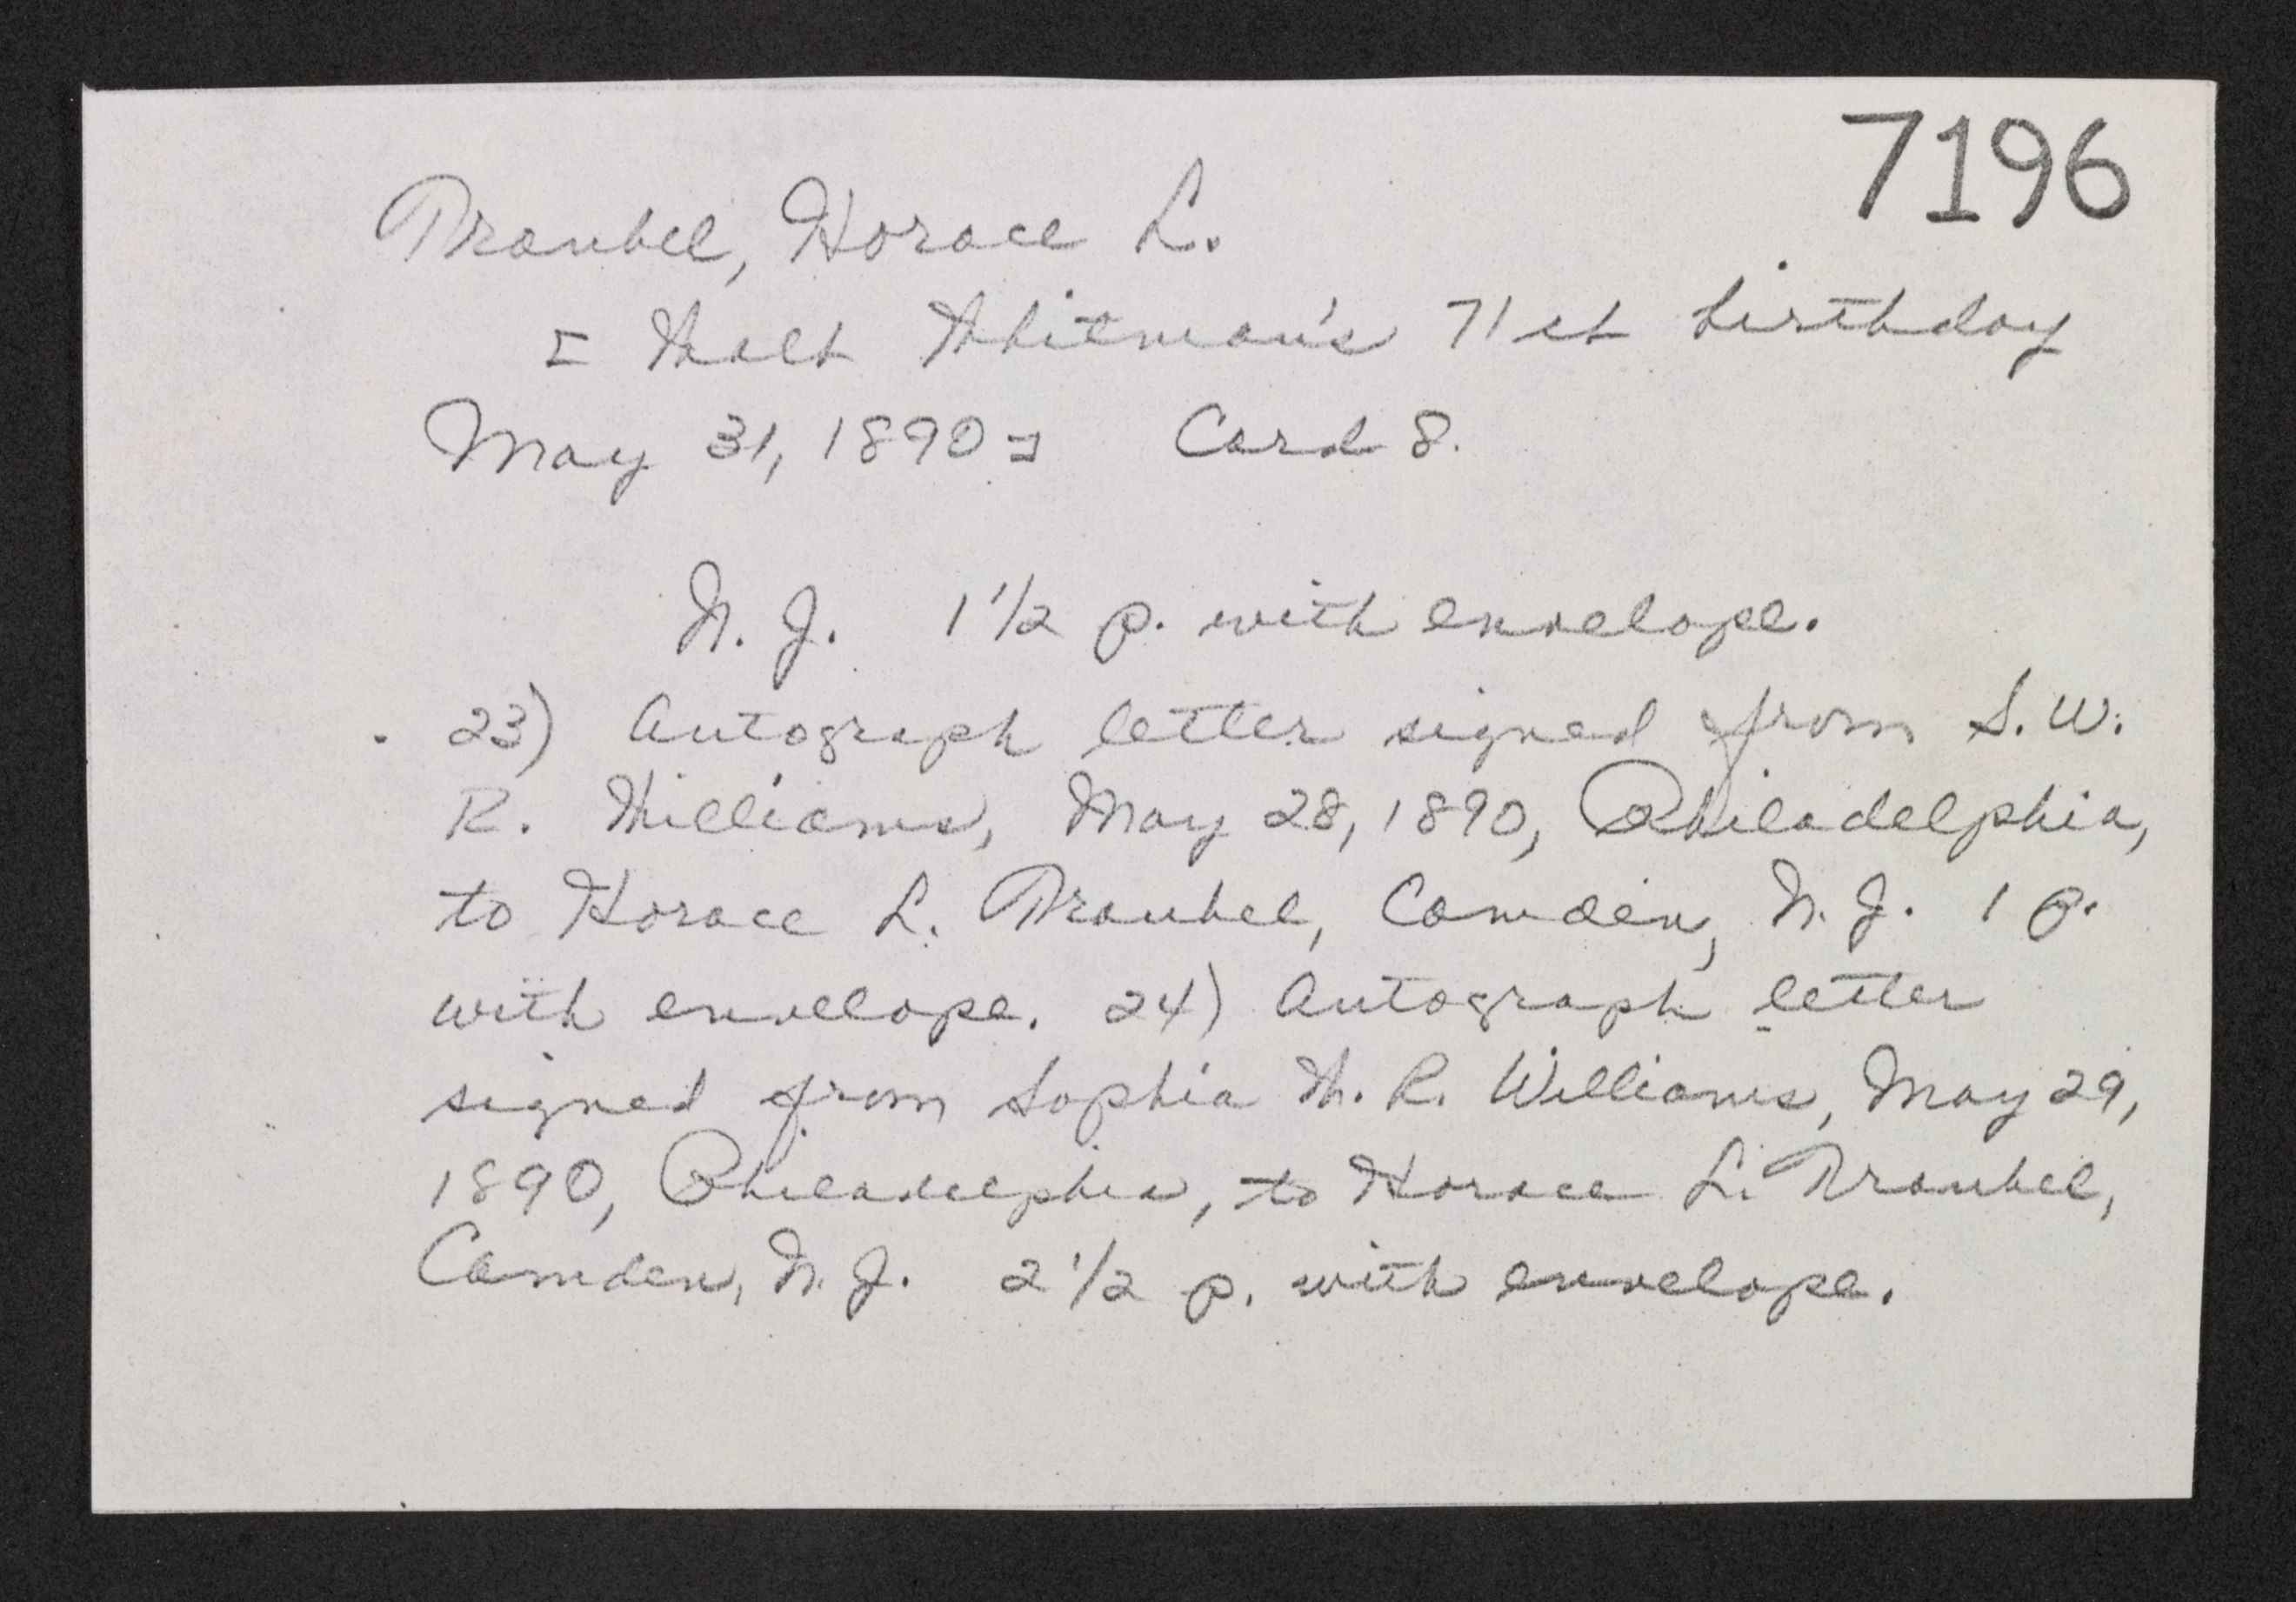 7196
Traubel, Horace L.
[Walt Whitman's 71st birthday
May 31, 1890] Card 8.
N. J. 1 1/2 p. with envelope.
23) Autograph letter signed from S. W.
R. Williams, May 28, 1890, Philadelphia,
to Horace L. Traubel, Camden, N. J. 1 p.
with envelope. 24) Autograph letter
signed from Sophia W. R. Williams, May 29,
1890, Philadelphia, to Horace L. Traubel,
Camden, N. J. 2 1/2 p. with envelope.